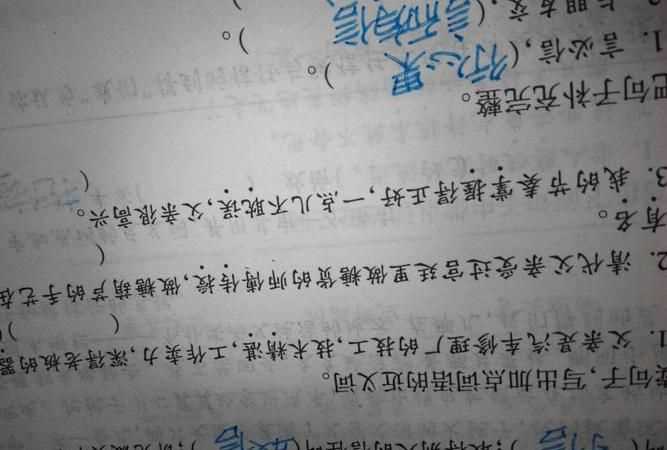 叫(守信);取得别人的信任叫(
读句子,写出加点词语的近义词。
1. 父亲是汽车修理厂的技工,技术精湛,工作卖力,深得老板的器
( )(
2. 清代父亲受过宫廷里做糖货的师傅传授,做糖葫芦的手艺在
(
有名。
3. 我的节奏掌握得正好,一点儿不耽误,父亲很高兴。
(
把句子补充完整。
1. 言必信,(行必果)。
2. 与朋友交,(言而有信)。